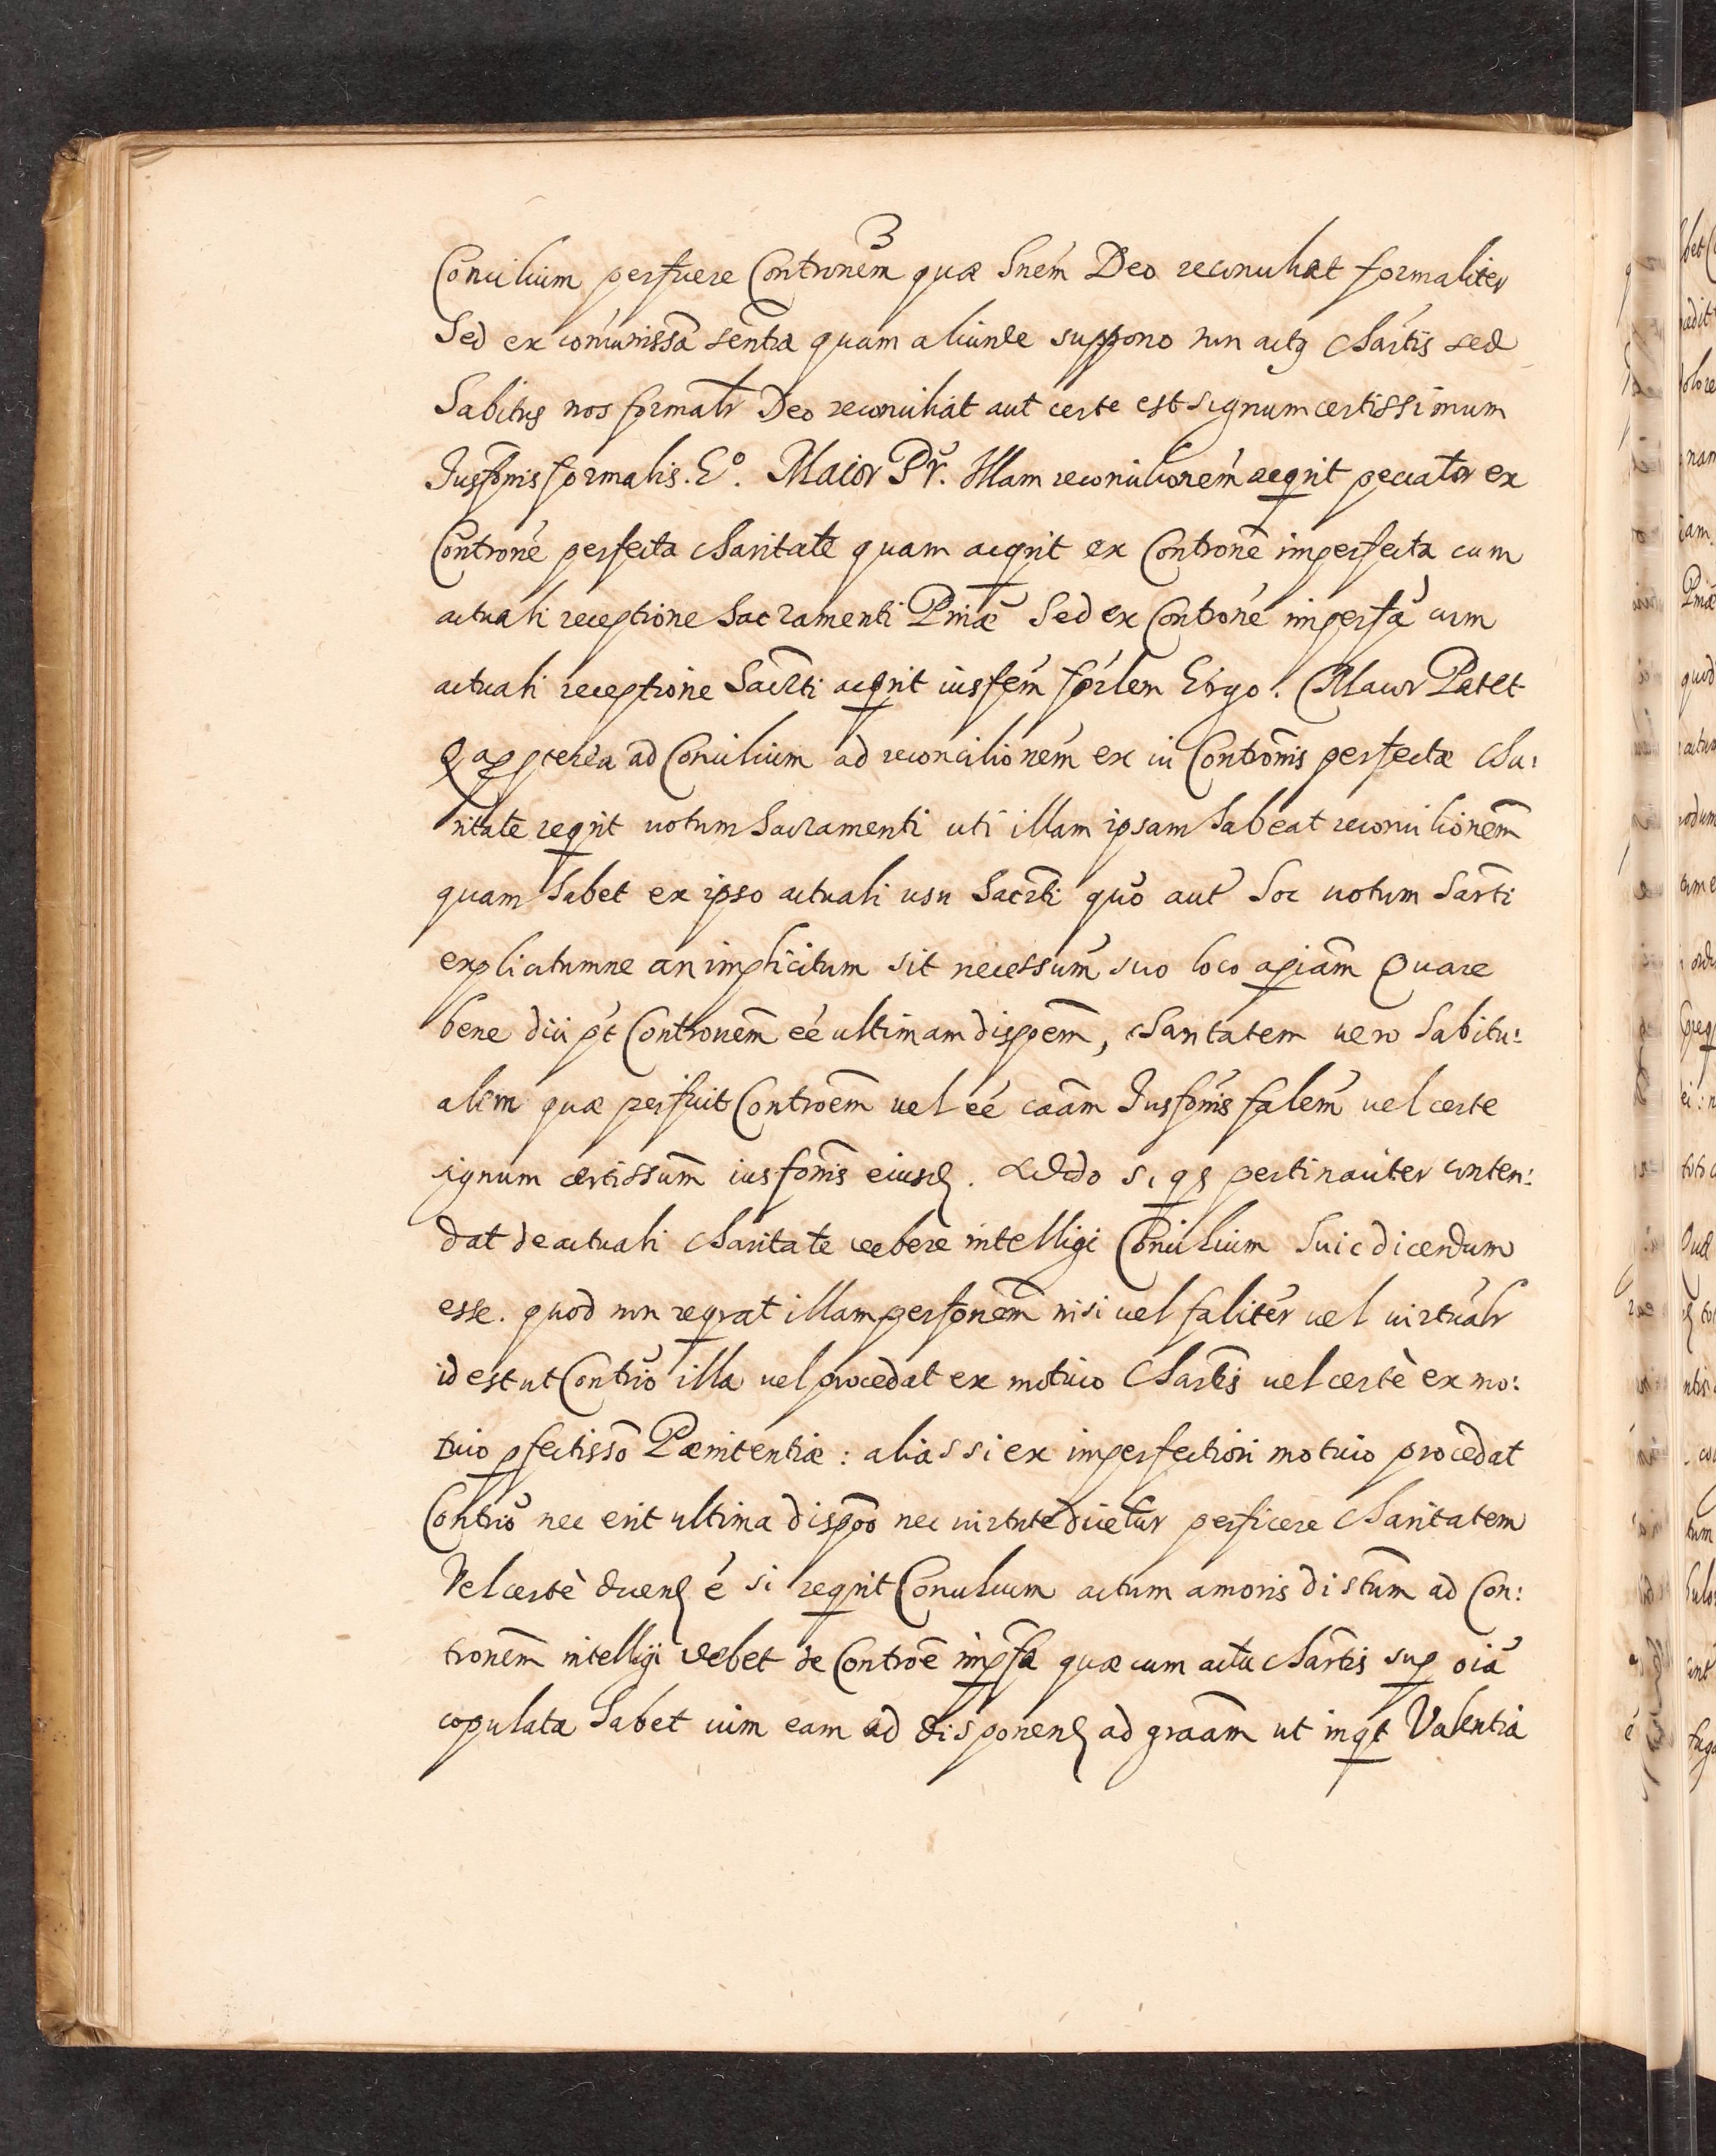 Concilium perficere Contrionem quæ hnem Deo reconciliat formaliter
Sed ex comunissa sentia quam aliunde suppono non actq charitis sed
habitus nos formalr Deo reconciliat aut certe est signum certissimum
Jusfonis formalis. Eº. Maior Pr. Illam reconcilionem acqrit peccator ex
Contrione perfecta charitate quam acqrit ex Contrione imperfecta cum
actuali receptione Sacramenti Pniæ Sed ex Contrione imperfa cum
actuali receptione Sacrti acqrit iusfem forlem Ergo. Maior Patet
Q ppterea ad Concilium ad reconcilionem ex ui Contrionis perfectæ cha:
ritate reqrit uotum Sacramenti uti illam ipsam habeat reconcilionem
quam habet ex ipso actuali usu Sacrti quo aut hoc uotum Sacrti
explicatumne an implicitum sit necessum suo loco apiam Quare
bene dici pt Contrionem ee ultimam dispoem, charitatem uero habitu:
alem quæ perficit Contrioem uel ee caam Jusfonis falem uel certe
signum certissum iusfonis eiusd. Addo si qs pertinaciter conten:
dat de actuali charitate debere intelligi Concilium huic dicendum
esse. quod non reqrat illam perfonem nisi uel faliter uel uirtualr
id est ut Contrio illa uel procedat ex motiuo charitis uel certè ex mo:
tiuo pfectisso Pænitentiæ: alias si ex imperfectiori motiuo procedat
Contrio nec erit ultima dispoo nec uirtute dicetur perficere charitatem
Vel certè dicend é si reqrit Concilium actum amoris distum ad Con:
trionem intelligi debet de Contrioe impfa quæ cum actu charitis sup oia
copulata habet uim eam ad disponend ad graam ut inqt Valentia